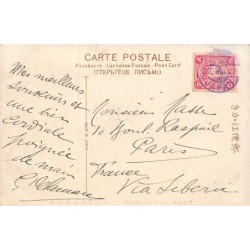 CARTE POSTALE
Postkarte - Cartolina Postale - Post Card
ОТКРЫТОЕ ПИСЬМО
Mes meilleurs
souvenirs et
une bien
cordiale
poignée
de main
Monsieur Masse
10 Boul. Raspail
Paris
France
Via Siberia
JAPAN